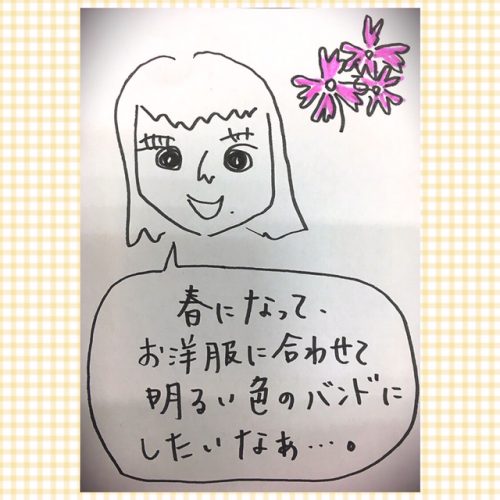 春になって、
お洋服に合わせて
明るい色のバンドに
したいなぁ…。